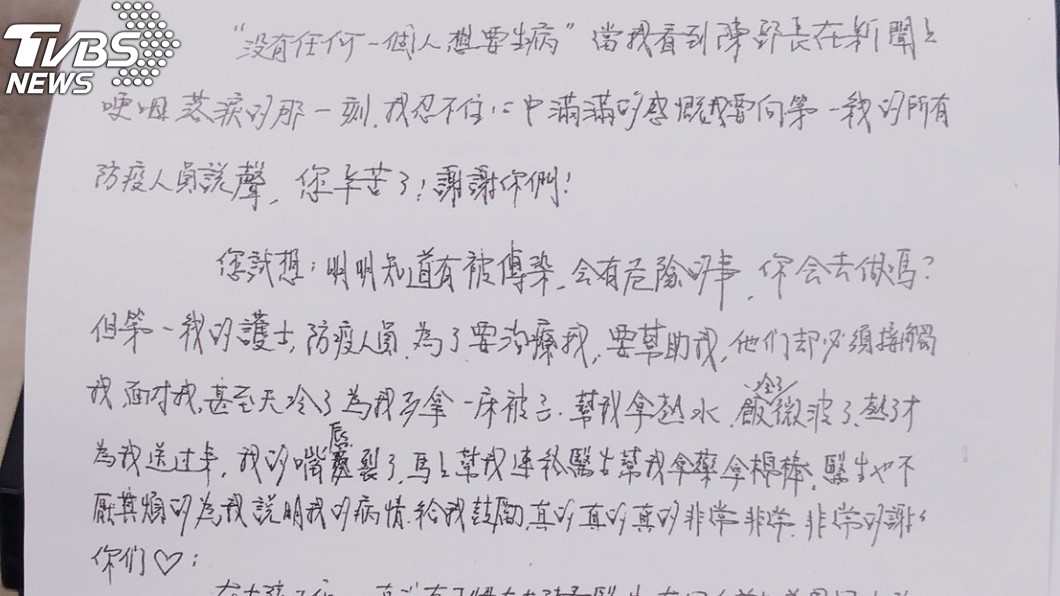 TVBS
NEWS
“没有任何一個人想要生病”當我看到陳部長在新聞上
哽咽落淚的那一刻,我忍不住心中滿滿的感慨我要向第一线的所有
防疫人員說聲,您辛苦了!謝謝你們!
您試想:明明知道有被傳染,会有危險的事,你会去做嗎?
但第一线的護士,防疫人員,為了要治療我,要幫助我,他们却必須接觸
我面对我,甚至天冷了為我多拿一床被子.幫我拿熱水,飯冷了微波了熱了才
為我送过來,我的嘴唇裂了,馬上幫我連絡醫生幫我拿藥拿棉棒,醫生也不
厭其煩的為我說明我的病情.給我鼓勵,真的真的真的非常非常.非常的謝謝
你们♡: